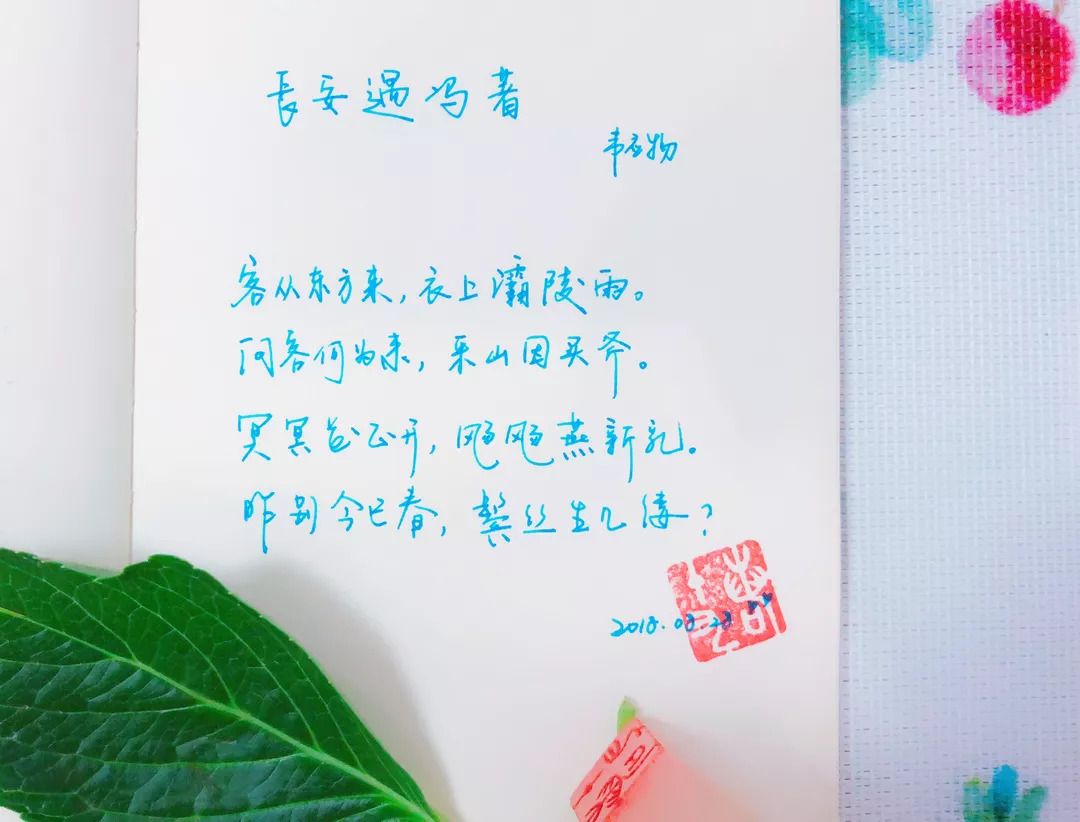 長安遇冯著
韦应物
客从东方来，衣上灞陵雨。
问客何为来，采山因买斧。
冥冥花正开，飏飏燕新乳。
昨别今已春，鬓丝生几缕？
2018.08.28